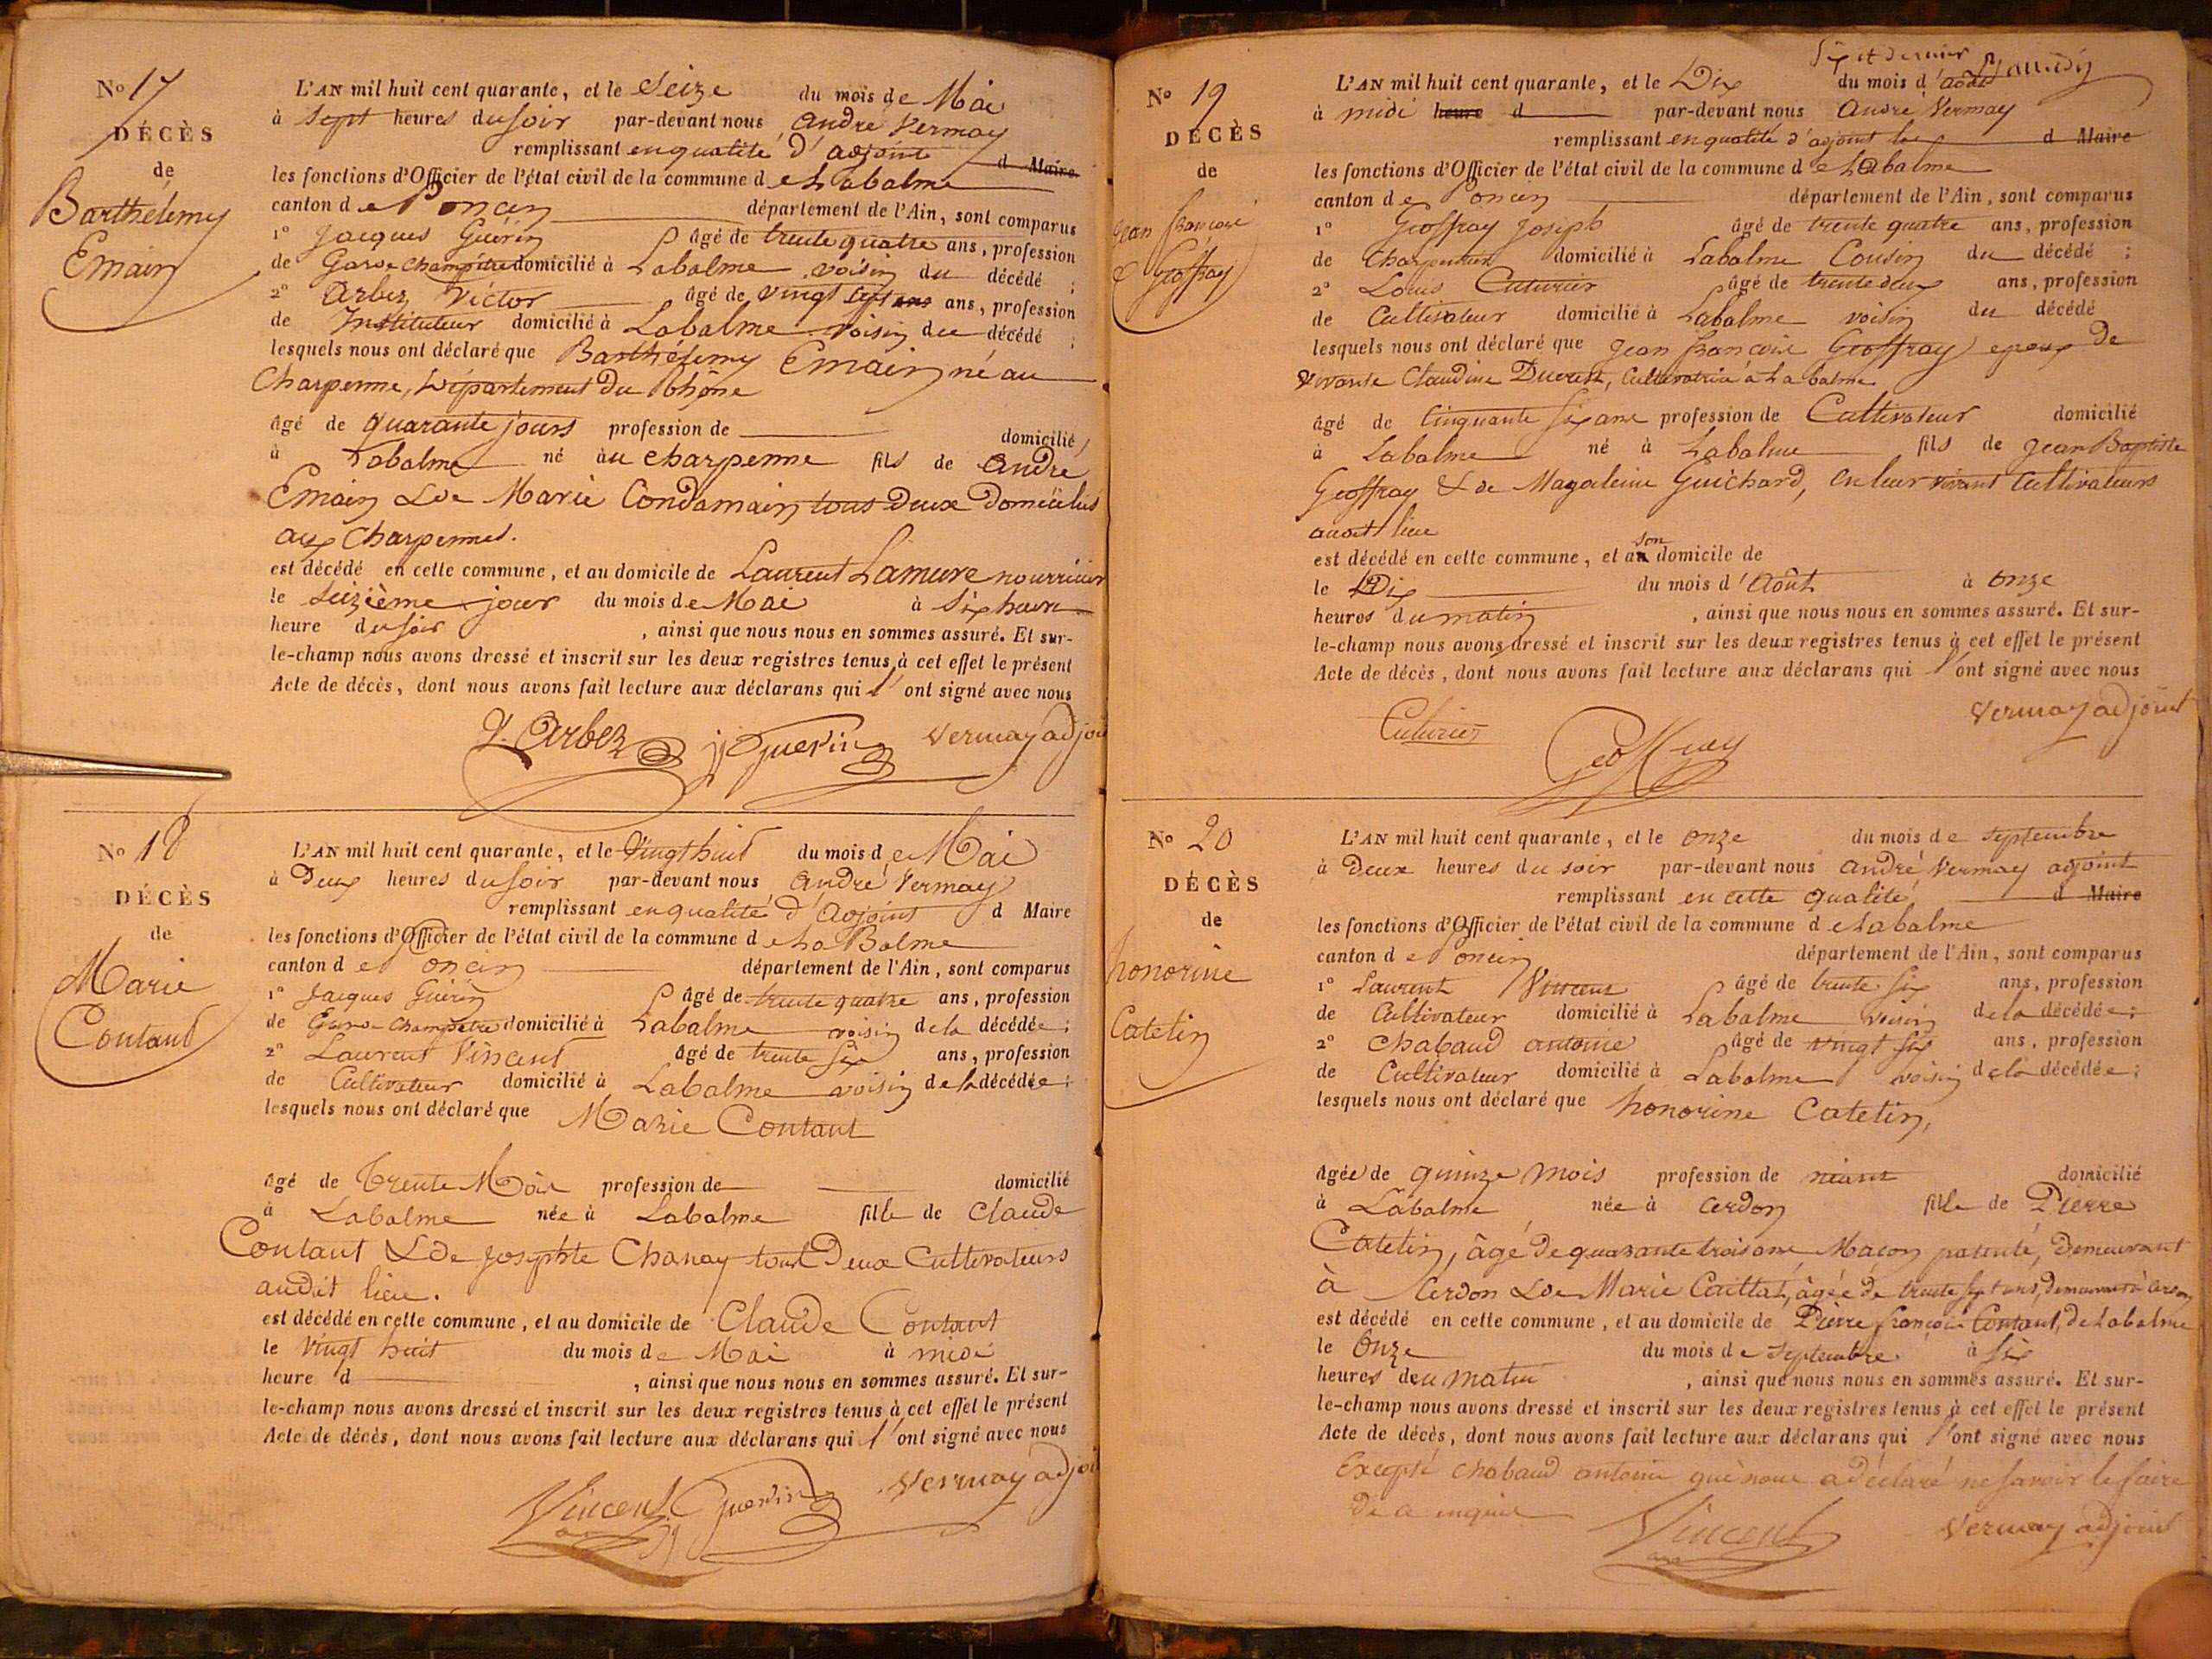 No 17
DÉCÈS
de
Barthélemy
Emain
L'AN mil huit cent quarante, et le Seize du mois de Mai
à Sept heures du soir par-devant nous André Vermay
remplissant en qualité d'adjoint d Maire
les fonctions d'Officier de l'état civil de la commune de Labalme
canton de Poncin département de l'Ain, sont comparus
1° Jacques Guérin âgé de trente quatre ans, profession
de Garde champêtre domicilié à Labalme voisin du décédé ;
2° Arbez Victor âgé de vingt sept ans ans, profession
de Instituteur domicilié à Labalme voisin du décédé ;
lesquels nous ont déclaré que Barthélemy Emain né au
Charpenne, Département du Rhône
âgé de quarante jours profession de domicilié
à Labalme né au charpenne fils de André
Emain & de Marie Condamain tous deux domiciliés
aux Charpennes.
est décédé en cette commune, et au domicile de Laurent Lamure nourricier
le Seizième jour du mois de Mai à Six heure
heure du soir , ainsi que nous nous en sommes assuré. Et sur-
le-champ nous avons dressé et inscrit sur les deux registres tenus à cet effet le présent
Acte de décès, dont nous avons fait lecture aux déclarans qui l'ont signé avec nous
V. Arbez j Guerin Vermay adjoi
No 18
DÉCÈS
de
Marie
Contant
L'AN mil huit cent quarante, et le Vingt huit du mois de Mai
à Deux heures du soir par-devant nous André Vermay
remplissant en qualité d'Adjoint d Maire
les fonctions d'Officier de l'état civil de la commune de La Balme
canton de Poncin département de l'Ain, sont comparus
1° Jacques Guérin âgé de trente quatre ans, profession
de Garde champêtre domicilié à Labalme voisin de la décédée ;
2° Laurent Vincent âgé de trente six ans, profession
de Cultivateur domicilié à Labalme voisin de la décédée ;
lesquels nous ont déclaré que Marie Contant
âgé de Trente Mois profession de domicilié
à Labalme née à Labalme fille de Claude
Contant & de Josephte Chanay tous Deux Cultivateurs
audit lieu.
est décédé en cette commune, et au domicile de Claude Contant
le Vingt huit du mois de Mai à midi
heure d , ainsi que nous nous en sommes assuré. Et sur-
le-champ nous avons dressé et inscrit sur les deux registres tenus à cet effet le présent
Acte de décès, dont nous avons fait lecture aux déclarans qui l'ont signé avec nous
Vincent Guerin Vermay adjoi
Six et dernier
No 19
DÉCÈS
de
Jean françois
Geoffray
L'AN mil huit cent quarante, et le Dix du mois d'août
à midi heure d par-devant nous André Vermay
remplissant en qualité d'adjoint d Maire
les fonctions d'Officier de l'état civil de la commune de Labalme
canton de Poncin département de l'Ain, sont comparus
1° Geoffray Joseph âgé de trente quatre ans, profession
de Charpentier domicilié à Labalme Cousin du décédé ;
2° Louis Cuturier âgé de trente deux ans, profession
de Cultivateur domicilié à Labalme voisin du décédé
lesquels nous ont déclaré que Jean françois Geoffray epoux De
vivante Claudine Ducret, Cultivatrice à La balme
âgé de Cinquante six ans profession de Cultivateur domicilié
à Labalme né à Labalme fils de Jean Baptiste
Geoffray & de Magdeleine Guichard, en leur vivant Cultivateurs
audit lieu
est décédé en cette commune, et a son domicile de
le Dix du mois d'Août à onze
heures du matin , ainsi que nous nous en sommes assuré. Et sur-
le-champ nous avons dressé et inscrit sur les deux registres tenus à cet effet le présent
Acte de décès, dont nous avons fait lecture aux déclarans qui l'ont signé avec nous
Cuturier Geoffray Vermay adjoint
No 20
DÉCÈS
de
honorine
Catelin
L'AN mil huit cent quarante, et le onze du mois de septembre
à Deux heures du soir par-devant nous André Vermay adjoint
remplissant en cette qualité d Maire
les fonctions d'Officier de l'état civil de la commune de Labalme
canton de Poncin département de l'Ain, sont comparus
1° Laurent Vincent âgé de trente six ans, profession
de Cultivateur domicilié à Labalme voisin de la décédée ;
2° Chabaud antoine âgé de vingt six ans, profession
de Cultivateur domicilié à Labalme voisin de la décédée ;
lesquels nous ont déclaré que honorine Catelin,
âgée de quinze mois profession de néant domicilié
à Labalme née à Cerdon fille de Pierre
Catelin, âgé de quarante trois ans Maçon patenté, Demeurant
à Cerdon & de Marie Caillat, âgée de trente sept ans, demeurant à Cerdon
est décédé en cette commune, et au domicile de Pierre françois Contant, de Labalme
le Onze du mois de septembre à six
heures deu matin , ainsi que nous nous en sommes assuré. Et sur-
le-champ nous avons dressé et inscrit sur les deux registres tenus à cet effet le présent
Acte de décès, dont nous avons fait lecture aux déclarans qui l'ont signé avec nous
Excepté chabaud antoine qui nous a déclaré ne savoir le faire
de ce enquis
Vincent Vermay adjoint